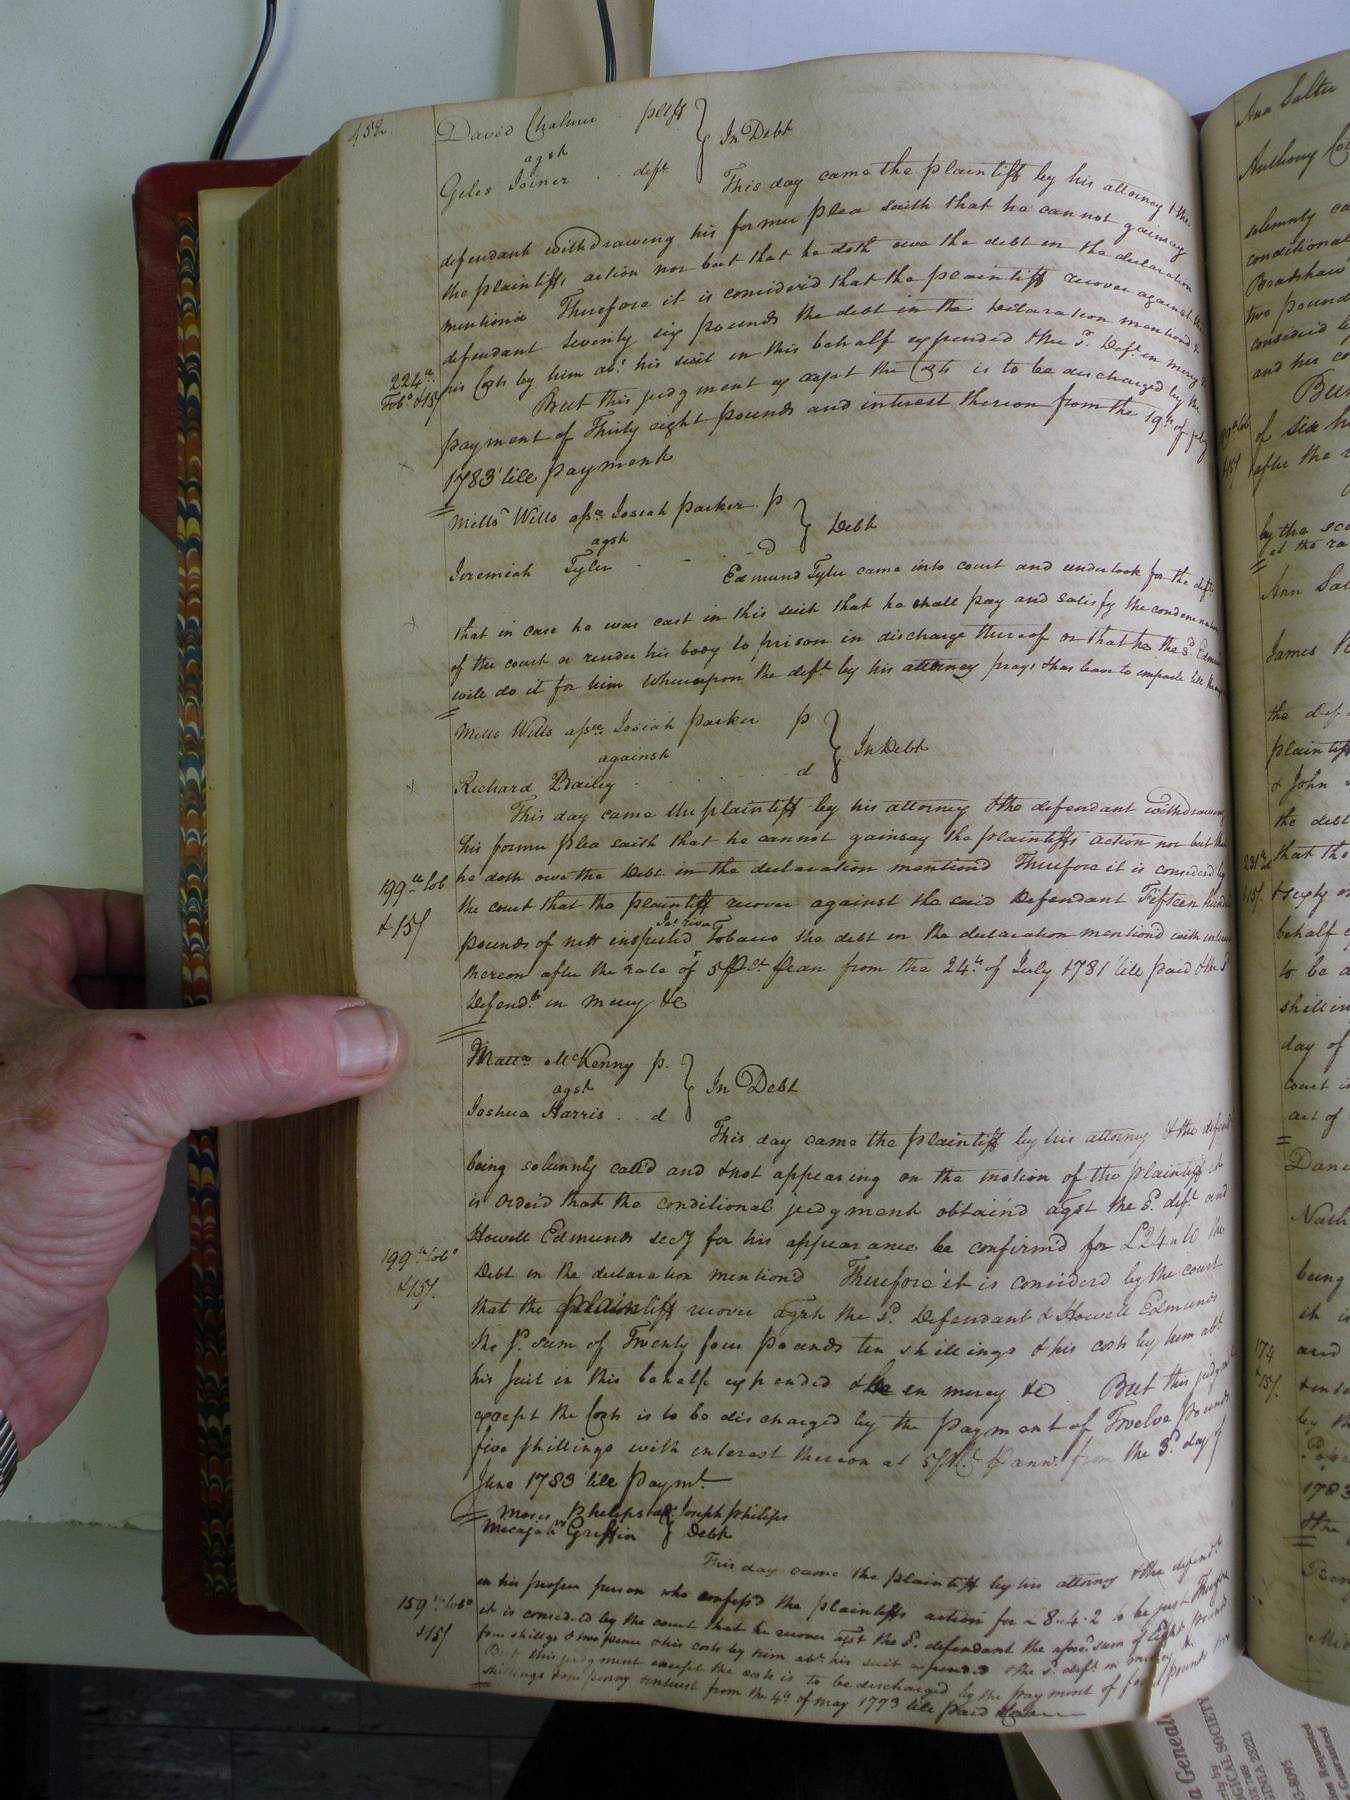 452.
David Chalmer pltff
agst
In Debt
Giles Joiner . . deft
This day came the plaintiff by his attorney & the
defendant withdrawing his former plea saith that he cannot gainsay
the plaintiffs action nor but that he doth owe the debt in the declaration
mentiond Therefore it is considerd that the plaintiff recover against the
defendant Seventy six pounds the debt in the Declaration mentiond &
his Costs by him abt. his suit in this behalf expended & the sd. Deft. in mercy
224 lb.
Tobo. & 15/
But this judgment except the Costs is to be discharged by the
payment of Thirty eight pounds and interest thereon from the 19th of
1783 till payment
Mills Wills assee Josiah Parker . p
agst
Debt
Jeremiah Tyler . - . - d
Edmund Tyler came into court and undertook for the deft
that in case he was cast in this suit that he shall pay and satisfy the condemnation
of the court or render his body to prison in discharge thereof or that he the sd. Edmund
will do it for him Whereupon the deft. by his attorney prays & has leave to imparle till
Mills Wills assee Josiah Parker p
against
In Debt
Richard Bailey . . . . . . . d
This day came the plaintiff by his attorney & the defendant withdrawing
his former plea saith that he cannot gainsay the plaintiffs action nor but that
he doth owe the Debt in the declaration mentiond Therefore it is considerd by
199 lb tob
& 15/
the court that the plaintiff recover against the said Defendant Fifteen hundred
pounds of nett inspected Tobacco the debt in the declaration mentiond with
thereon after the rate of 5 pCt. pean from the 24th of July 1781 till paid & the sd
Defendt. in mercy &c
Matt. McKenny p.
agst
In Debt
Joshua Harris . . d
This day came the plaintiff by his attorney & the
being solemnly calld and & not appearing on the motion of the plaintiff it
is orderd that the conditional judgment obtaind agst the sd. deft. and
Howell Edmunds secy for his appearance be confirmd for £24 " 10 the
199 lb tobo
& 15/.
Debt in the declaration mentiond Therefore it is considerd by the court
that the plaintiff recover agst the sd. Defendant & Howell Edmunds
the sd. sum of Twenty four pounds ten shillings & his costs by him abt.
his suit in this behalf expended & in mercy &c But this
except the Costs is to be discharged by the payment of Twelve pounds
five shillings with interest thereon at 5 pCt. p ann. from the 3d. day of
June 1783 till paymt.
Moses Phelips Joseph Philips
vs
Micajah Griffin Debt
This day came the plaintiff by his attorney & the defendt.
in his proper person who confess'd the plaintiffs action for 8 . 4 . 2 to be just
159 lb tobo
& 15/
it is considerd by the court that he recover agst the sd. defendant the aforesd. sum of Eight pounds
four shillgs & two pence & his costs by him abt. his suit expended & the sd. deft. in mercy &
But this judgment except the costs is to be discharged by the payment of four pounds
shillings & one penny & interest from the 4th of may 1773 till paid
Ann Salter
Anthony
solemnly
conditional
Bradshaw
two pound
considerd
and his co
& 15/
of six
after the
by the
at the ra
Ann Sal
James
the def
plaintiff
& John
the debt
that the
& 15/.
& sixty
behalf
to be
shillin
day of
court
act of
Dani
Nath
being
it is
174
& 15/.
and
by th
1783
the
SOCIETY